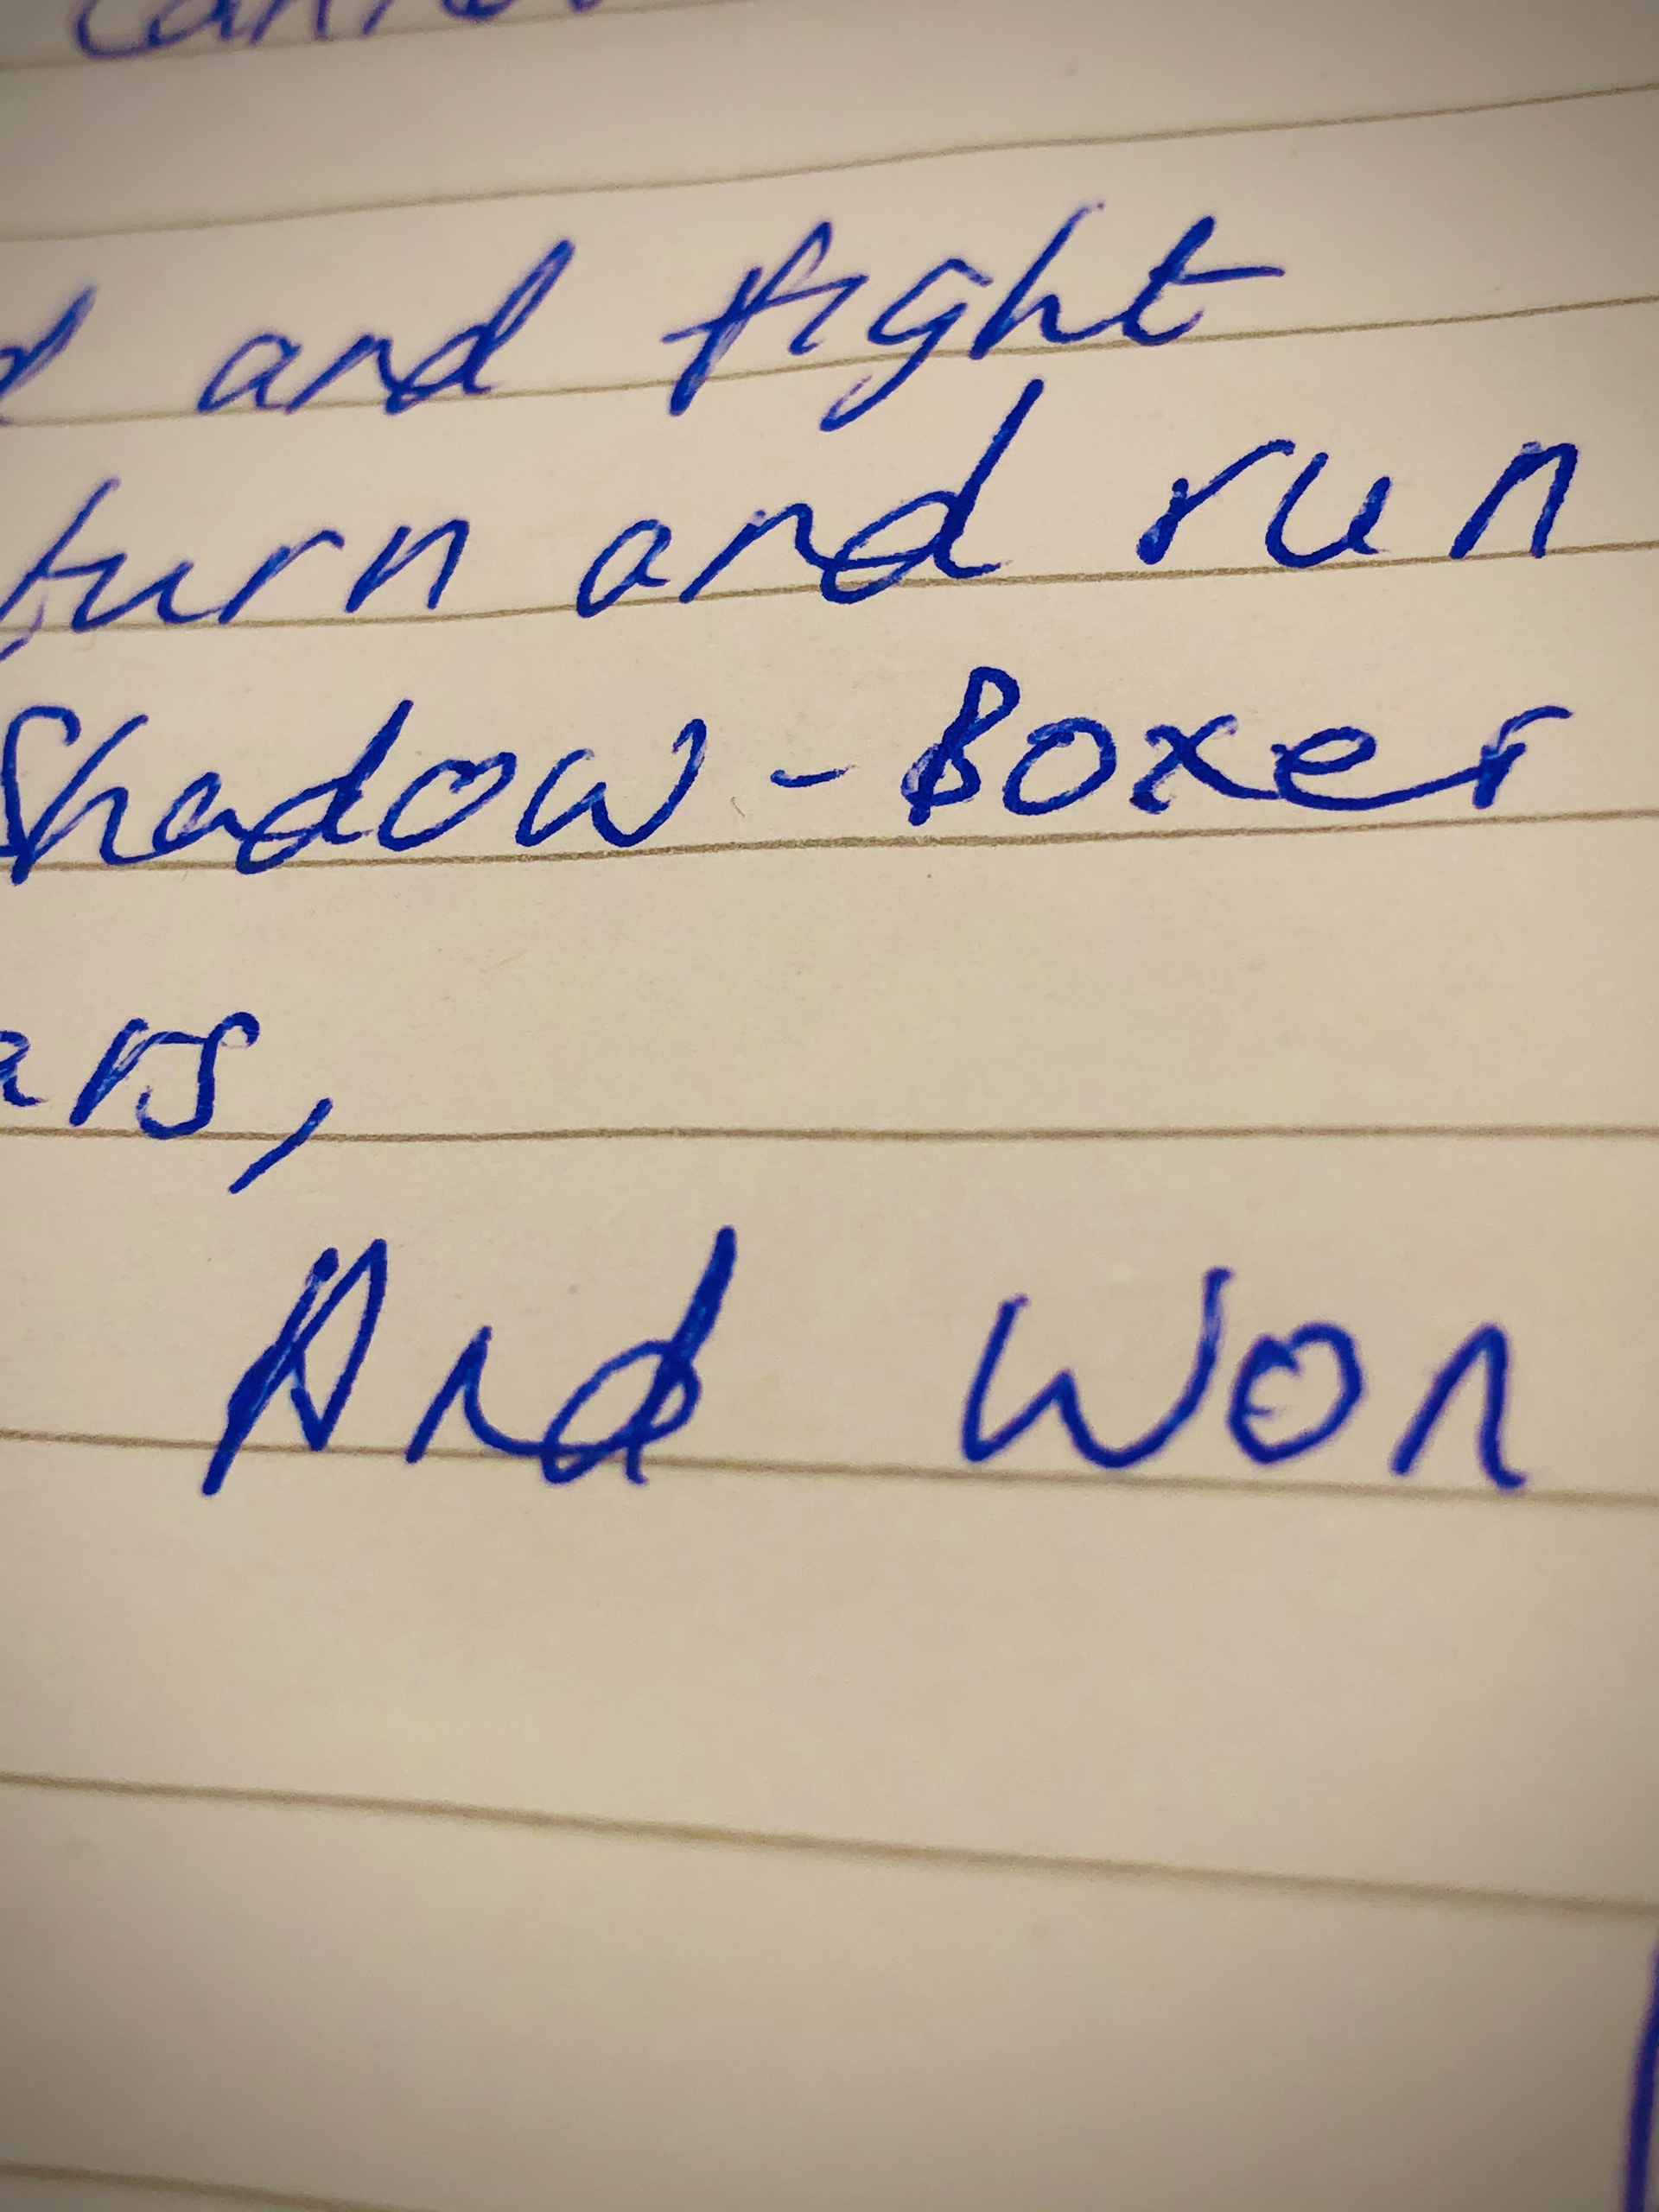 and fight
turn and run
Shadow-Boxer
And won